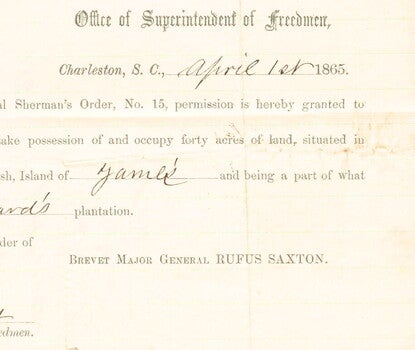 Office of Superintendent of Freedmen,
Charleston, S. C., April 1st 1865.
al Sherman's Order, No. 15, permission is hereby granted to
ake possession of and occupy forty acres of land, situated in
sh, Island of James and being a part of what
ard's plantation.
der of
BREVET MAJOR GENERAL RUFUS SAXTON.
edmen.